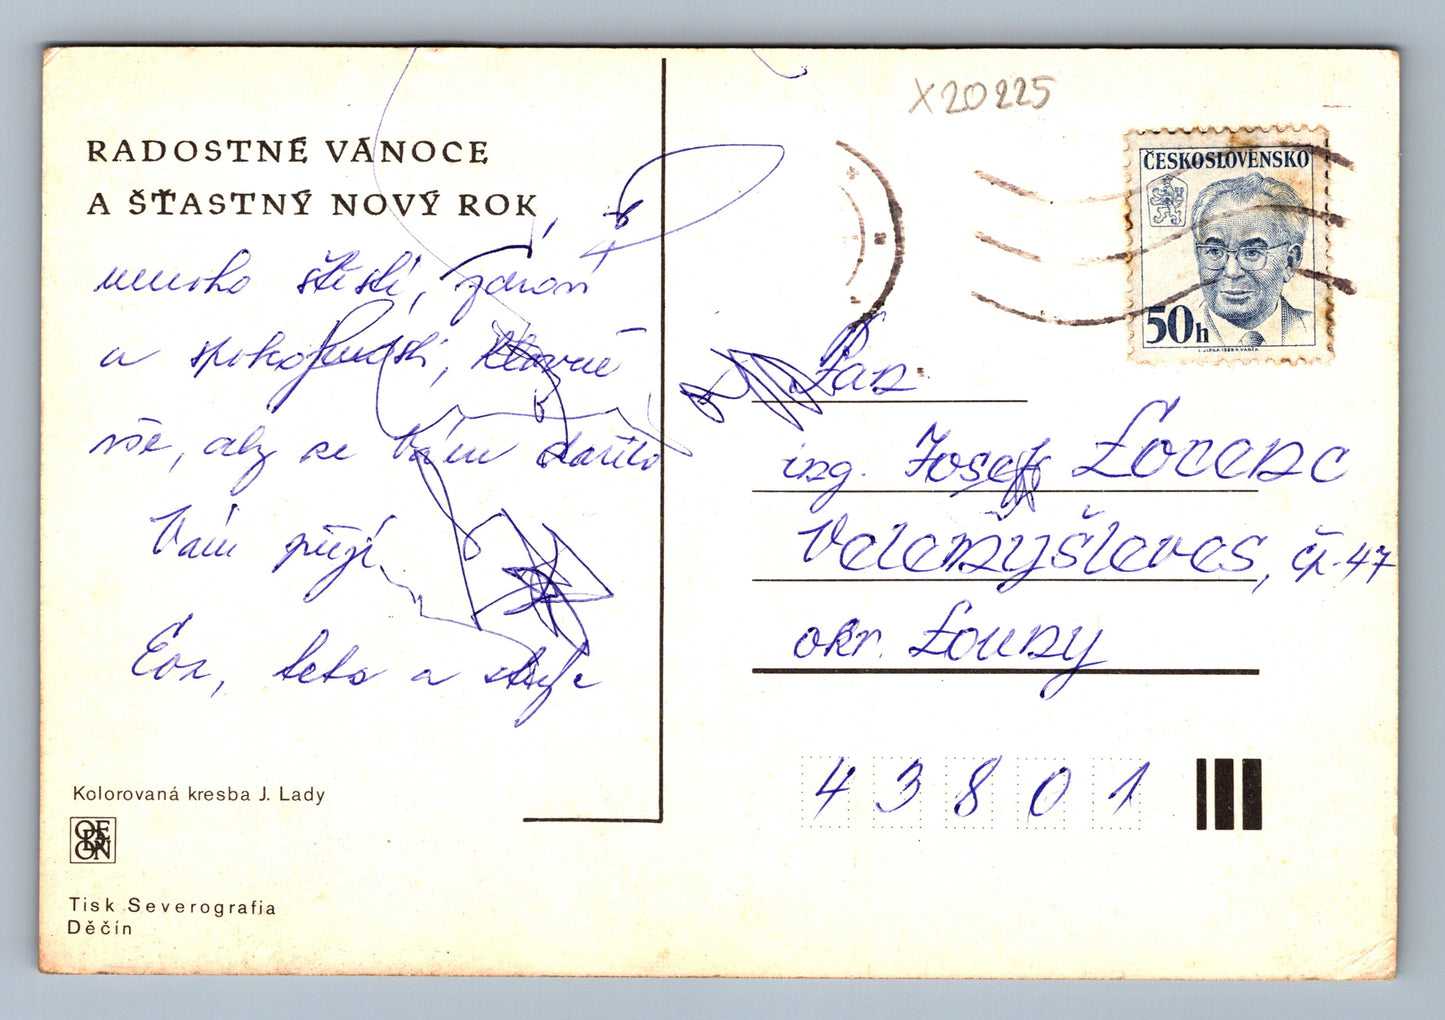 RADOSTNÉ VÁNOCE
A ŠŤASTNÝ NOVÝ ROK,
mnoho štěstí, zdraví
a spokojenosti, hlavně
vše, aby se Vám dařilo
Vám přejí
teta a strýc
Kolorovaná kresba J. Lady
ODEON
Tisk Severografia
Děčín
X20225
ČESKOSLOVENSKO
50h
Pan
ing. Josef Lorenc
Velemyšleves, čp. 47
okr. Louny
43801